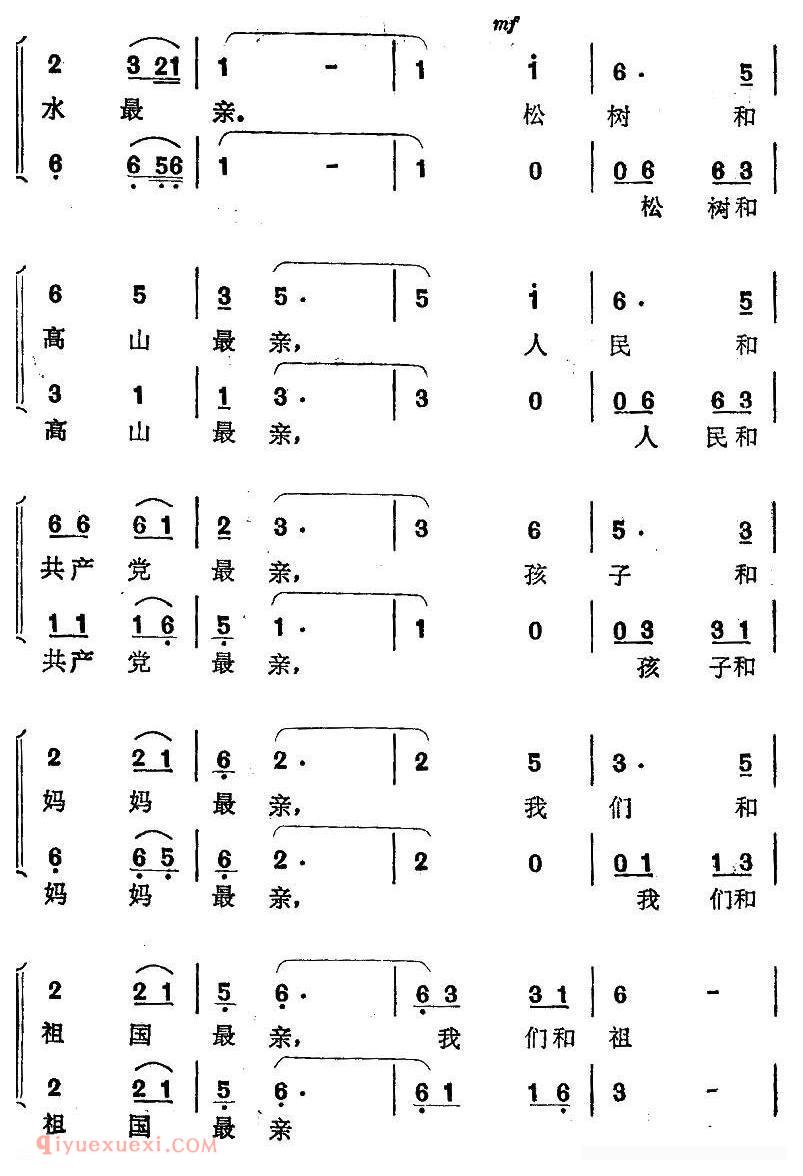 mf
2 3 21 | 1 - | 1 i | 6· 5 |
水 最 亲。 松 树 和
6 6 56 | 1 - | 1 0 | 0 6 6 3 |
松 树 和
6 5 | 3 5· | 5 i | 6· 5 |
高 山 最 亲, 人 民 和
3 1 | 1 3· | 3 0 | 0 6 6 3 |
高 山 最 亲, 人 民 和
6 6 6 1 | 2 3· | 3 6 | 5· 3 |
共 产 党 最 亲, 孩 子 和
1 1 1 6 | 5 1· | 1 0 | 0 3 3 1 |
共 产 党 最 亲, 孩 子 和
2 2 1 | 6 2· | 2 5 | 3· 5 |
妈 妈 最 亲, 我 们 和
6 6 5 | 6 2· | 2 0 | 0 1 1 3 |
妈 妈 最 亲, 我 们 和
2 2 1 | 5 6· | 6 3 3 1 | 6 - |
祖 国 最 亲, 我 们 和 祖
2 2 1 | 5 6· | 6 1 1 6 | 3 - |
祖 国 最 亲
qiyuexuexi.COM